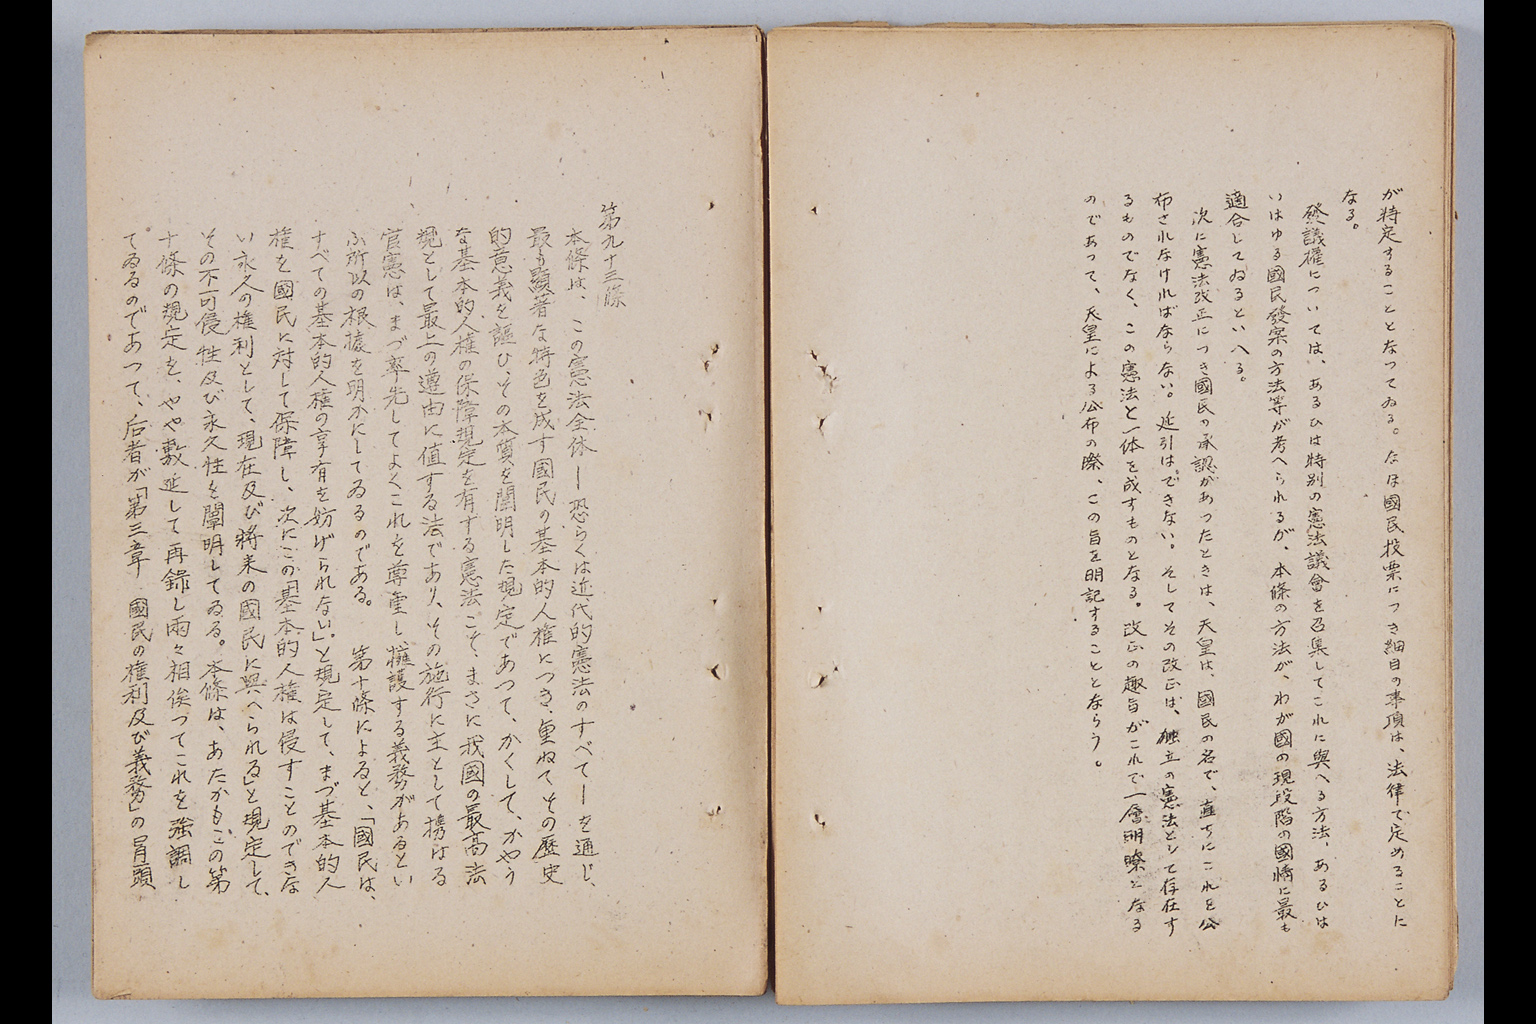 が特定することとなつてゐる。なほ國民投票につき細目の事項は、法律で定めることに
なる。
發議權については、あるひは特別の憲法議會を召集してこれに與へる方法、あるひは
いはゆる國民發案の方法等が考へられるが、本條の方法が、わが國の現段階の國情に最も
適合してゐるといへる。
次に憲法改正につき國民の承認があつたときは、天皇は、國民の名で、直ちにこれを公
布されなければならない。延引はできない。そしてその改正は、独立の憲法として存在す
るものでなく、この憲法と一体を成すものとなる。改正の趣旨がこれで一層明瞭となる
のであつて、天皇による公布の際、この旨を明記することとならう。
第九十三條
本條は、この憲法全体ー恐らくは近代的憲法のすべてーを通じ、
最も顯著な特色を成す國民の基本的人権につき、重ねてその歷史
的意義を謳ひ、その本質を闡明した規定であつて、かくして、かやう
な基本的人権の保障規定を有する憲法こそ、まさに我國の最高法
規として最上の遵由に値する法であり、その施行に主として携はる
官憲は、まづ率先してよくこれを尊重し擁護する義務があるとい
ふ所以の根據を明かにしてゐるのである。　第十條によると、「國民は、
すべての基本的人権の享有を妨げられない」。と規定して、まづ基本的人
権を國民に対して保障し、次にこの「基本的人権は侵すことのできな
い永久の権利として、現在及び將来の國民に與へられる」と規定して、
その不可侵性及び永久性を闡明してゐる。本條は、あたかもこの第
十條の規定を、やや敷延して再錄し両々相俟つてこれを強調し
てゐるのであつて、后者が「第三章　國民の権利及び義務」の冐頭